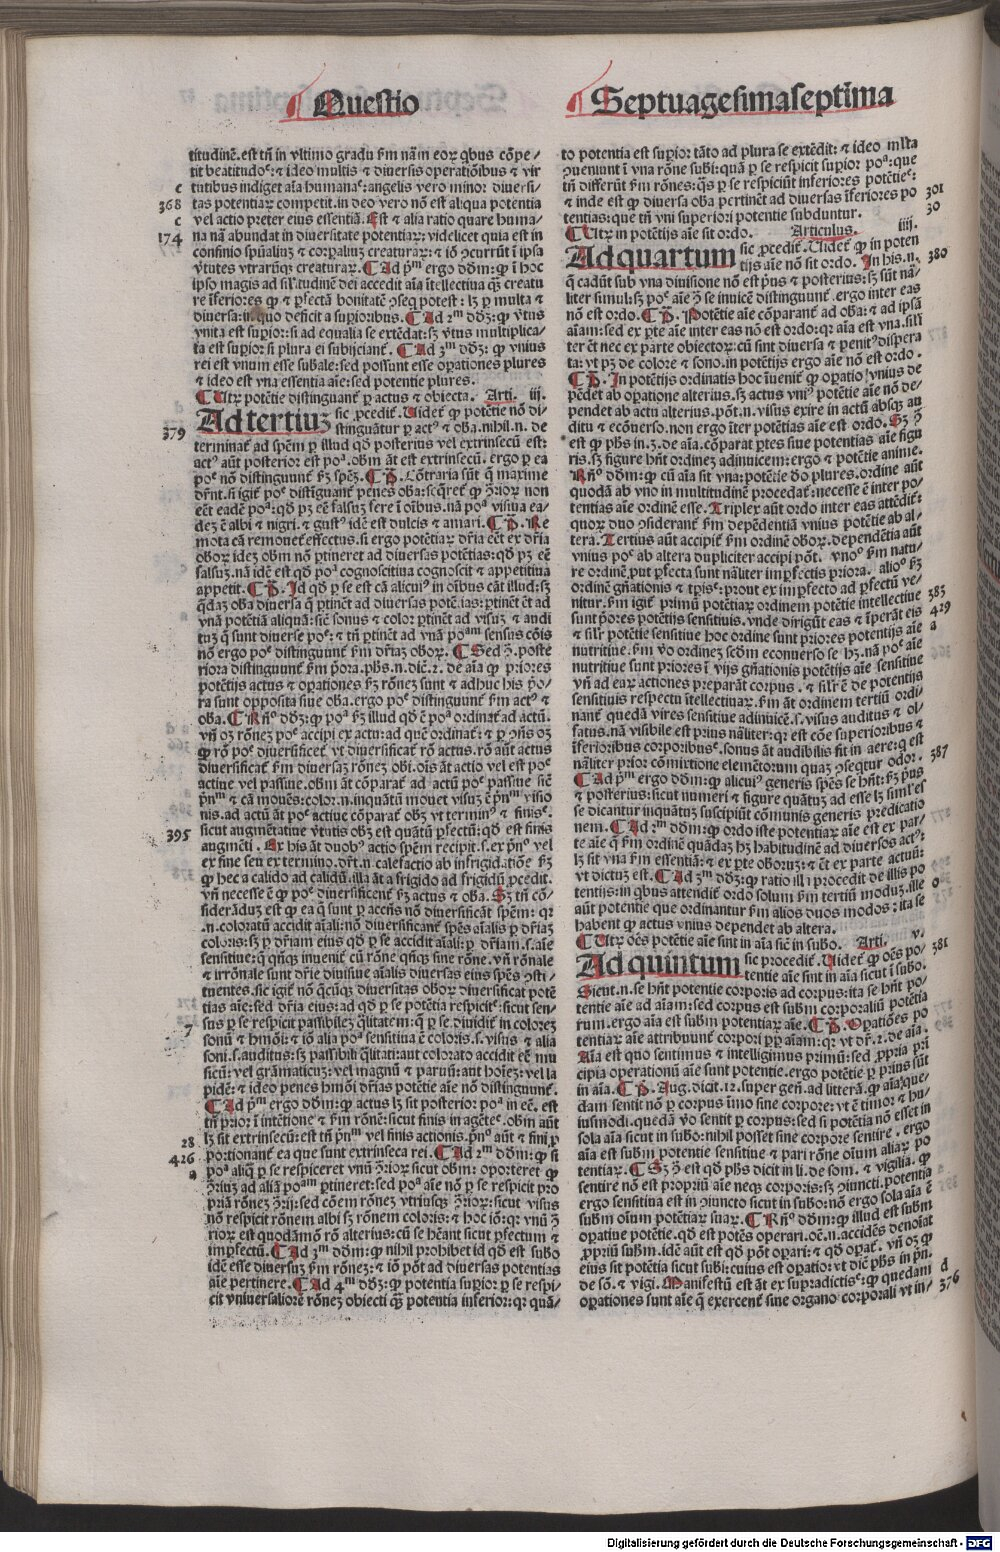 Questio
Septuagesimaseptima
titudinē. est tn̄ in vltimo gradu ẜm nām eoꝝ qbus cōpe/
tit beatitudo: ⁊ ideo multis ⁊ diuersis operatiōibus ⁊ vir
c
tutibus indiget aīa humana: angelis vero minor diuersi/
368
tas potentiaꝝ competit. in deo vero nō est aliqua potentia
c
vel actio preter eius essentiā. Est ⁊ alia ratio quare huma/
174
na nā abundat in diuersitate potentiaꝝ: videlicet quia est in
confinio spūaliuꝫ ⁊ corꝑaliuꝫ creaturaꝝ: ⁊ iō ꝯcurrūt ī ipsa
v̓tutes vtrarūqꝫ creaturaꝝ. ¶ Ad pᵐ ergo dōm: ꝙ ī hoc
ipso magis ad sil̓itudinē dei accedit aīa ītellectiua qꝫ creatu
re īferiores ꝙ ⁊ ꝑfectā bonitatē ꝯseq̄ potest: lꝫ ꝑ multa ⁊
diuersa: in quo deficit a suꝑioribus. ¶ Ad 2ᵐ dōꝫ: ꝙ v̓tus
vnita est suꝑior: si ad equalia se extēdat: sꝫ v̓tus multiplica/
ta est suꝑior si plura ei subijciant̄. ¶ Ad 3ᵐ dōꝫ: ꝙ vnius
rei est vnum esse subale: sed possunt esse oꝑationes plures
⁊ ideo est vna essentia aīe: sed potentie plures.
¶ Utꝝ potētie distinguant̄ ꝑ actus ⁊ obiecta. Arti. iij.
Ad tertiuꝫ
sic ꝓcedit̄. Videt̄ ꝙ potētie nō di/
379
stinguātur ꝑ actꝰ ⁊ oba. nihil. n. de
terminat̄ ad spēm ꝑ illud qd̄ posterius vel extrinsecū est:
actꝰ aūt posterior est poᵃ. obm āt est extrinsecū. ergo ꝑ ea
poᵉ nō distinguunt̄ ẜꝫ spēꝫ. ¶ P̄. Cōtraria sūt q̄ maxime
dr̄nt. si igit̄ poᵉ distīguant̄ penes oba: seq̄ret̄ ꝙ ꝯ̓rioꝝ non
eēt eadē poᵃ: qd̄ pꝫ eē falsuꝫ fere ī oībus. nā poᵃ visiua ea/
deꝫ ē albi ⁊ nigri. ⁊ gustꝰ idē est dulcis ⁊ amari. ¶ P̄. Re
mota cā remouet̄ effectus. si ergo potētiaꝝ dr̄ia eēt ex dr̄ia
oboꝝ ideꝫ obm nō ꝑtineret ad diuersas potētias: qd̄ pꝫ eē
falsuꝫ. nā idē est qd̄ poᵃ cognoscitiua cognoscit ⁊ appetitiua
appetit. ¶ P̄. Id qd̄ ꝑ se est cā alicuiꝰ in oībus cāt illud: sꝫ
q̄daꝫ oba diuersa q̄ ꝑtinēt ad diuersas potē.ias: ꝑtinēt ēt ad
vnā potētiā aliquā: sic̄ sonus ⁊ color ꝑtinēt ad visuꝫ ⁊ audi
tuꝫ q̄ sunt diuerse poᵉ: ⁊ tn̄ ꝑtinēt ad vnā poᵃᵐ sensus cōis
nō ergo poᵉ distinguunt̄ ẜm dr̄iaꝫ oboꝝ. ¶ Sed ꝯ̓. poste
riora distinguunt̄ ẜm p̓ora. phs. n. dic̄. 2. de aīa ꝙ priores
potētijs actus ⁊ oꝑationes ẜꝫ rōneꝫ sunt ⁊ adhuc his p̓o/
ra sunt opposita siue oba. ergo poᵉ distinguunt̄ ẜm actꝰ ⁊
oba. ¶ Rn̄ᵒ dōꝫ: ꝙ poᵃ ẜꝫ illud qd̄ ē poᵃ ordinat̄ ad actū.
vn̄ oꝫ rōneꝫ poᵉ accipi ex actu: ad quē ordinat̄: ⁊ ꝑ ꝯn̄s oꝫ
ꝙ rō poᵉ diuersificet̄ vt diuersificat̄ rō actus. rō aūt actus
diuersificat̄ ẜm diuersaꝫ rōneꝫ obi. oīs āt actio vel est poᵉ
actiue vel passiue. obm āt cōparat̄ ad actū poᵉ passiue sic̄
pn̄ᵐ ⁊ cā mouēs: color. n. inquātū mouet visuꝫ ē pn̄ᵐ visio
nis. ad actū āt poᵉ actiue cōparat̄ obꝫ vt terminꝰ ⁊ finisᵉ.
395
sicut augmētatiue v̓tutis obꝫ est quātū ꝑfectū: qd̄ est finis
augmēti. Ex his āt duobꝰ actio spēm recipit. s. ex pn̄ᵒ vel
ex fine seu ex termino. dr̄t. n. calefactio ab infrigidatiōe ẜꝫ
ꝙ hec a calido ad calidū. illa āt a frigido ad frigidū ꝓcedit.
vn̄ necesse ē ꝙ poᵉ diuersificent̄ ẜꝫ actus ⁊ oba. Sꝫ tn̄ cō/
siderāduꝫ est ꝙ ea q̄ sunt ꝑ accn̄s nō diuersificāt spēm: qꝛ
.n. coloratū accidit aīali: nō diuersificant̄ spēs aīalis ꝑ dr̄iaꝫ
coloris: sꝫ ꝑ dr̄iam eius qd̄ ꝑ se accidit aīali: ꝑ dr̄iam. s. aīe
sensitiue: q̄ qn̄qꝫ inuenit̄ cū rōne qn̄qꝫ sine rōne. vn̄ rōnale
⁊ irrōnale sunt dr̄ie diuisiue aīalis diuersas eius spēs ꝯsti/
tuentes. sic igit̄ nō q̄cūqꝫ diuersitas oboꝝ diuersificat potē
tias aīe: sed dr̄ia eius: ad qd̄ ꝑ se potētia respicit: sicut sen/
7
sus ꝑ se respicit passibileꝫ q̄litatem: q̄ ꝑ se. diuidit̄ in coloreꝫ
sonū ⁊ hmōi: ⁊ iō alia poᵃ sensitiua ē coloris. s. visus ⁊ alia
soni. s. auditus: sꝫ passibili q̄litati: aut colorato accidit eē mu
sicū: vel grāmaticuꝫ: vel magnū ⁊ paruū: aut hoīeꝫ: vel la
pidē: ⁊ ideo penes hmōi dr̄ias potētie aīe nō distinguunt̄.
¶ Ad pᵐ ergo dōm: ꝙ actus lꝫ sit posterior poᵃ in eē. est
tn̄ prior ī intētione ⁊ ẜm rōnē: sicut finis in agēte. obm aūt
28
lꝫ sit extrinsecū: est tn̄ pn̄ᵐ vel finis actionis. pn̄ᵒ aūt ⁊ fini ꝑ
426
portionant̄ ea que sunt extrinseca rei. ¶ Ad 2ᵐ dōm: ꝙ si
a
poᵃ aliq̄ ꝑ se respiceret vnū ꝯ̓rioꝝ sicut obm: oporteret ꝙ
ꝯ̓riuꝫ ad aliā poᵃᵐ ꝑtineret: sed poᵃ aīe nō ꝑ se respicit pro
priā rōneꝫ ꝯ̓rij: sed cōem rōneꝫ vtriusqꝫ ꝯ̓rioꝝ: sicut visus
nō respicit rōnem albi sꝫ rōnem coloris: ⁊ hoc iō: qꝛ vnū ꝯ̓
rioꝝ est quodāmō rō alterius: cū se hēant sicut ꝑfectum ⁊
imꝑfectū. ¶ Ad 3ᵐ dōm: ꝙ nihil prohibet id qd̄ est subo
idē esse diuersuꝫ ẜm rōneꝫ: ⁊ iō pōt ad diuersas potentias
aīe pertinere. ¶ Ad 4ᵐ dōꝫ: ꝙ potentia suꝑior: ꝑ se respi/
cit vniuersaliorē rōneꝫ obiecti qꝫ potentia inferior: qꝛ quā/
to potentia est suꝑior tāto ad plura se extēdit: ⁊ ideo ml̓ta
ꝯueniunt ī vna rōne subi: quā ꝑ se respicit suꝑior poᵃ: que
tn̄ differūt ẜm rōnes: q̄s ꝑ se respiciūt inferiores potētie:
301
⁊ inde est ꝙ diuersa oba pertinēt ad diuersas īferiores po
30
tentias: que tn̄ vni superiori potentie subduntur.
¶ Utꝝ in potētijs aīe sit ordo. Articulus. iiij.
Ad quartum
sic ꝓcedit̄. Videt̄ ꝙ in poten
380
tijs aīe nō sit ordo. In his. n.
q̄ cadūt sub vna diuisione nō est pn̓s ⁊ posterius: sꝫ sūt nā/
liter simul: sꝫ poᵉ aīe ꝯ̓ se inuicē distinguunt̄. ergo inter eas
nō est ordo. ¶ P̄. Potētie aīe cōparant̄ ad oba: ⁊ ad ipsā
aīam: sed ex ꝑte aīe inter eas nō est ordo: qꝛ aīa est vna. sil̓r
ter ēt nec ex parte obiectoꝝ: cū sint diuersa ⁊ penitꝰ dispera
ta: vt pꝫ de colore ⁊ sono. in potētijs ergo aīe nō est ordo.
¶ P̄. In potētijs ordinatis hoc īuenit̄ ꝙ oꝑatio vnius de
pēdet ab oꝑatione alterius. sꝫ actus vniꝰ potētie aīe nō de/
pendet ab actu alterius. pōt. n. visus exire in actū absqꝫ au
ditu ⁊ ecōuerso. non ergo īter potētias aīe est ordo. Sꝫ ꝯ̓
est ꝙ phs in. 3. de aīa. cōparat ꝑtes siue potentias aīe figu
ris. sꝫ figure hn̄t ordineꝫ adinuicem: ergo ⁊ potētie anime.
Rn̄ᵒ dōm: ꝙ cū aīa sit vna: potētie vo plures. ordine aūt
quodā ab vno in multitudinē procedat̄: necesse ē inter po/
tentias aīe ordinē esse. Triplex aūt ordo inter eas attēdit̄:
quoꝝ duo ꝯsiderant̄ ẜm depēdentiā vnius potētie ab al/
tera. Tertius aūt accipit̄ ẜm ordinē oboꝝ. dependētia aūt
vnius poᵉ ab altera dupliciter accipi pōt. vnoᵒ ẜm natu/
re ordinē. put ꝑfecta sunt nāliter imꝑfectis priora. alioᵒ ẜꝫ
ordinē gn̄ationis ⁊ tꝑis: prout ex imꝑfecto ad ꝑfectū ve/
383
nitur. ẜm igit̄ primū potētiaꝝ ordinem potētie intellectiue
429
sunt p̓ores potētijs sensitiuis. vnde dirigūt eas ⁊ īperāt eis
a
⁊ sil̓r potētie sensitiue hoc ordine sunt priores potentijs aīe
nutritiue. ẜm vo ordineꝫ scd̄m econuerso se hꝫ. nā poᵉ aīe
nutritiue sunt priores ī vijs gn̄ationis potētijs aīe sensitiue
vn̄ ad eaꝝ actiones preparāt corpus. ⁊ sil̓r ē de potentijs
sensitiuis respectu ītellectiuaꝝ. ẜm āt ordinem tertiū ordi/
nant̄ quedā vires sensitiue adinuicē. s. visus auditus ⁊ ol/
fatus. nā visibile est prius nāliter: qꝛ est cōe superioribus ⁊
īferioribus corporibus. sonus āt audibilis fit in aere: q̄ est
387
nāliter prior cōmixtione elemētorum quaꝫ ꝯsequitur odor.
¶ Ad pᵐ ergo dōm: ꝙ alicuiꝰ generis spēs se hn̄t: ẜꝫ pn̓s
⁊ posterius: sicut numeri ⁊ figure quātuꝫ ad esse lꝫ siml̓ es
se dicantur inquātuꝫ suscipiūt cōmunis generis predicatio
nem. ¶ Ad 2ᵐ dōm: ꝙ ordo iste potentiaꝝ aīe est ex par/
te aīe q̄ ẜm ordinē quādaꝫ hꝫ habitudinē ad diuersos actꝰ:
lꝫ sit vna ẜm essentiā: ⁊ ex ꝑte oboruꝫ: ⁊ ēt ex parte actuū:
vt dictuꝫ est. ¶ Ad 3ᵐ dōꝫ: ꝙ ratio illa procedit de illis po
tentijs: in qbus attendit̄ ordo solum ẜm tertiū moduꝫ. ille
o
aūt potentie que ordinantur ẜm alios duos modos: ita se
habent ꝙ actus vnius dependet ab altera.
¶ Utꝝ oēs potētie aīe sint in aīa sic̄ in subo. Arti. v.
Ad quintum
sic procedit̄. Videt̄ ꝙ oēs po/
381
tentie aīe sint in aīa sicut ī subo.
Sicut. n. se hn̄t potentie corporis ad corpus: ita se hn̄t po/
tentie aīe ad aīam: sed corpus est subm corporaliū potētia
rum. ergo aīa est subm potentiaꝝ aīe. ¶ P̄. Oꝑatiōes po
tentiaꝝ aīe attribuunt̄ corpori ꝑp̄ aīam: qꝛ vt dr̄. 2. de aīa.
Aīa est quo sentimus ⁊ intelligimus primū: sed ꝓpria prī
cipia operationū aīe sunt potentie. ergo potētie ꝑ prius sūt
in aīa. ¶ P̄. Aug. dicit. 12. super gen̄. ad litterā. ꝙ aīa: que/
dam sentit nō ꝑ corpus īmo sine corpore: vt ē timor ⁊ hu/
iusmodi. quedā vo sentit ꝑ corpus: sed si potētia nō esset in
sola aīa sicut in subo: nihil posset sine corpore sentire. ergo
aīa est subm potentie sensitiue ⁊ pari rōne oīum aliaꝝ po
tentiaꝝ. ¶ Sꝫ ꝯ̓ est qd̄ phs dicit in li. de som. ⁊ vigilia. ꝙ
sentire nō est propriū aīe neqꝫ corporis: sꝫ ꝯiuncti. potentia
ergo sensitiua est in ꝯiuncto sicut in subo: nō ergo sola aīa ē
subm oīum potētiaꝝ suaꝝ. ¶ Rn̄ᵒ dōm: ꝙ illud est subm
oꝑatiue potētie. qd̄ est potēs operari. oē. n. accidēs denoīat
ꝓpriū subm. idē aūt est qd̄ pōt oꝑari: ⁊ qd̄ oꝑat̄. vn̄ oꝫ ꝙ
eius sit potētia sicut subi: cuius est oꝑatio: vt dic̄ phs in prī.
de sō. ⁊ vigi. Manifestū est āt ex supradictis: ꝙ quedam
d
376
oꝑationes sunt aīe q̄ exercent̄ sine organo corporali vt in/
Digitalisierung gefördert durch die Deutsche Forschungsgemeinschaft - DFG